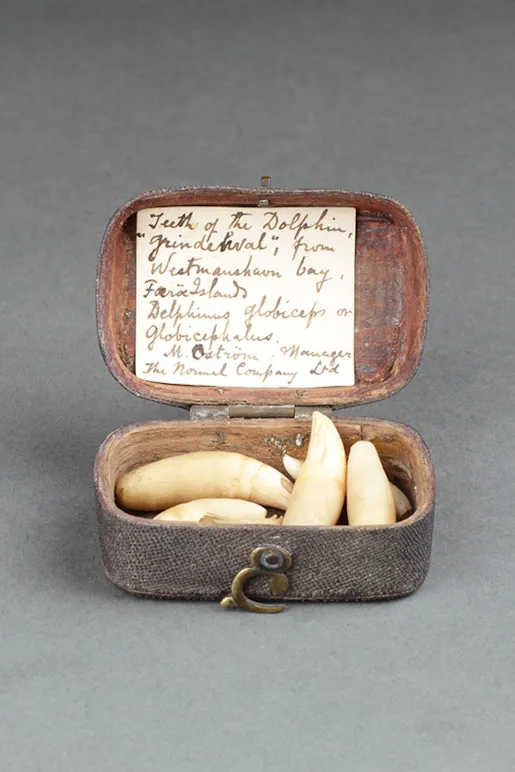 Teeth of the Dolphin,
"Grindehval", from
Westmanshavn bay,
Færöe Islands
Delphinus globiceps or
Globicephalus.
M. Öström, Manager
The Normal Company Ltd